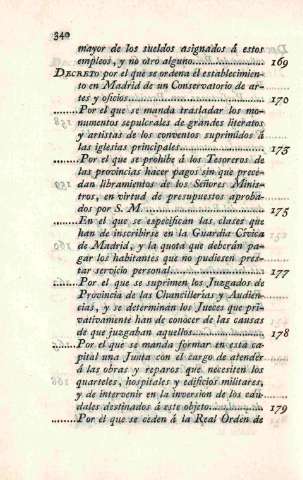 340
mayor de los sueldos asignados á estos
empleos, y no otro alguno................ 169
DECRETO por el que se ordena el establecimien-
to en Madrid de un Conservatorio de ar-
tes y oficios............................ 170
........Por el que se manda trasladar los mo-
numentos sepulcrales de grandes literatos
y artistas de los conventos suprimidos á
las iglesias principales................. 173
........Por el que se prohibe á los Tesoreros de
las provincias hacer pagos sin que prece-
dan libramientos de los Señores Minis-
tros, en virtud de presupuestos aproba-
dos por S. M............................. 175
........En el que se especifican las clases que
han de inscribirse en la Guardia Cívica
de Madrid, y la quota que deberán pa-
gar los habitantes que no pudiesen pres-
tar servicio personal.................... 177
........Por el que se suprimen los Juzgados de
Provincia de las Chancillerías y Audien-
cias, y se determinan los Jueces que pri-
vativamente han de conocer de las causas
de que juzgaban aquellos................. 178
........Por el que se manda formar en esta ca-
pital una Junta con el cargo de atender
á las obras y reparos que necesiten los
quarteles, hospitales y edificios militares,
y de intervenir en la inversion de los cau-
dales destinados á este objeto........... 179
........Por el que se ceden á la Real Orden de